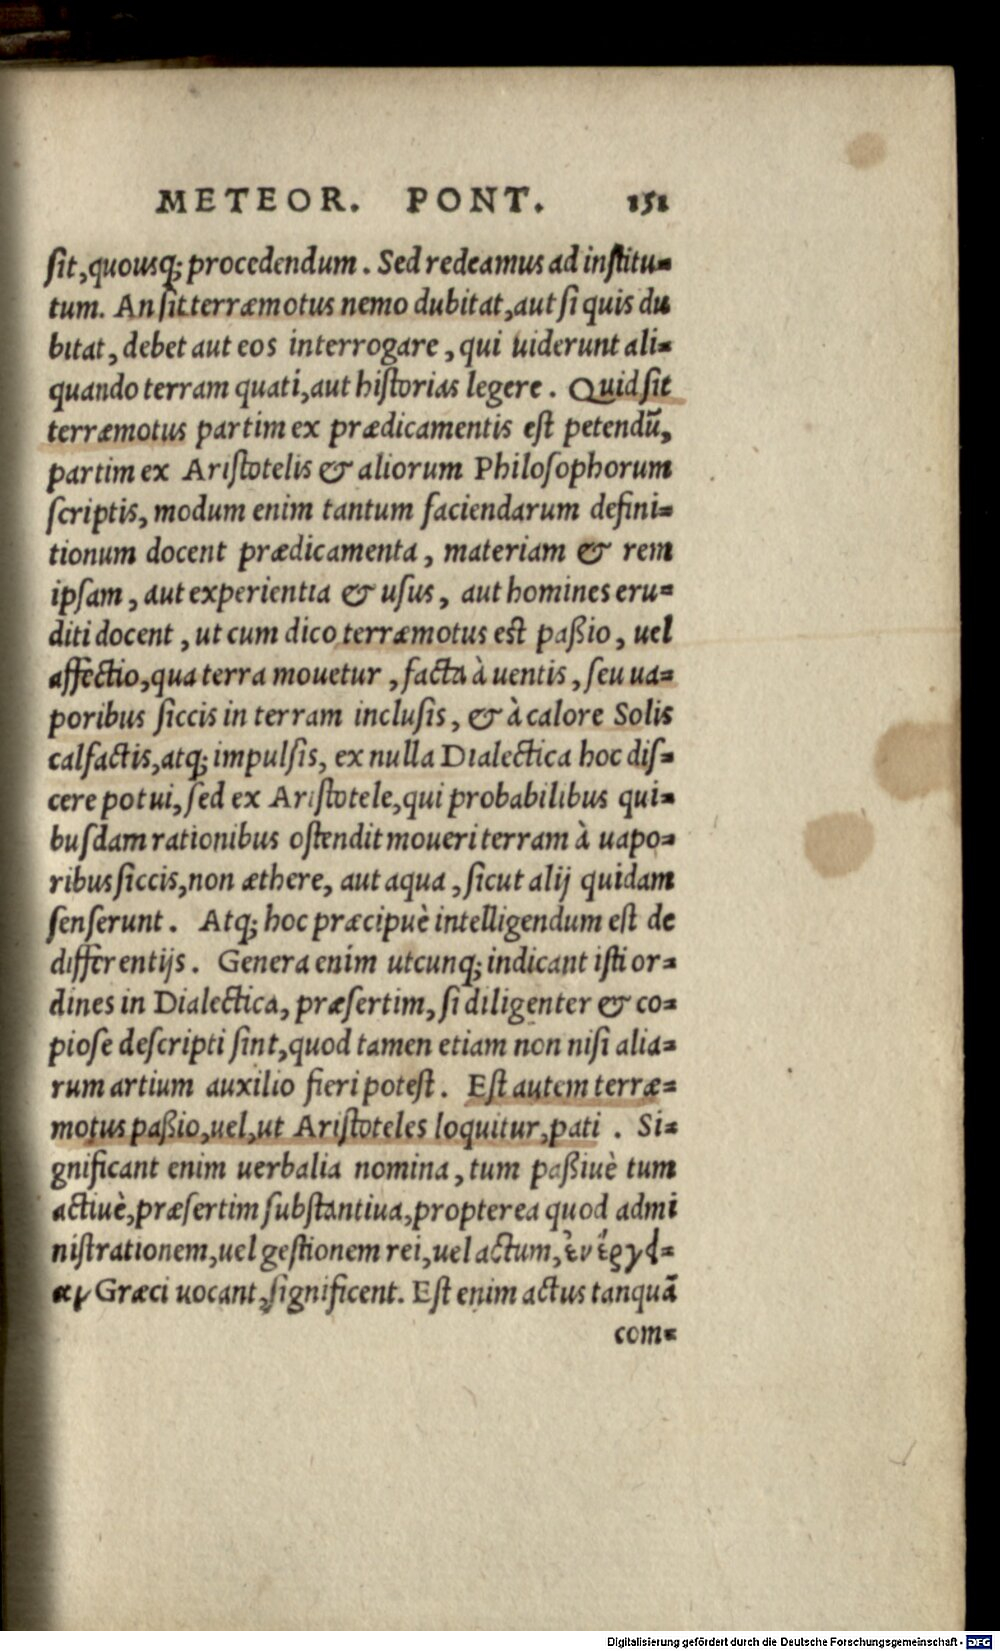 METEOR. PONT. 151
sit, quousq; procedendum. Sed redeamus ad institu-
tum. An sit terræmotus nemo dubitat, aut si quis du
bitat, debet aut eos interrogare, qui uiderunt ali-
quando terram quati, aut historias legere. Quid sit
terræmotus partim ex prædicamentis est petendũ,
partim ex Aristotelis & aliorum Philosophorum
scriptis, modum enim tantum faciendarum defini-
tionum docent prædicamenta, materiam & rem
ipsam, aut experientia & usus, aut homines eru-
diti docent, ut cum dico terræmotus est paßio, uel
affectio, qua terra mouetur, facta à uentis, seu ua-
poribus siccis in terram inclusis, & à calore Solis
calfactis, atq; impulsis, ex nulla Dialectica hoc dis-
cere potui, sed ex Aristotele, qui probabilibus qui-
busdam rationibus ostendit moueri terram à uapo-
ribus siccis, non æthere, aut aqua, sicut alij quidam
senserunt. Atq; hoc præcipuè intelligendum est de
differentijs. Genera enim utcunq; indicant isti or-
dines in Dialectica, præsertim, si diligenter & co-
piose descripti sint, quod tamen etiam non nisi alia-
rum artium auxilio fieri potest. Est autem terræ-
motus paßio, uel, ut Aristoteles loquitur, pati. Si-
gnificant enim uerbalia nomina, tum paßiuè tum
actiuè, præsertim substantiua, propterea quod admi
nistrationem, uel gestionem rei, uel actum, ἐνέργει-
αν Græci uocant, significent. Est enim actus tanquã
com-
Digitalisierung gefördert durch die Deutsche Forschungsgemeinschaft - DFG